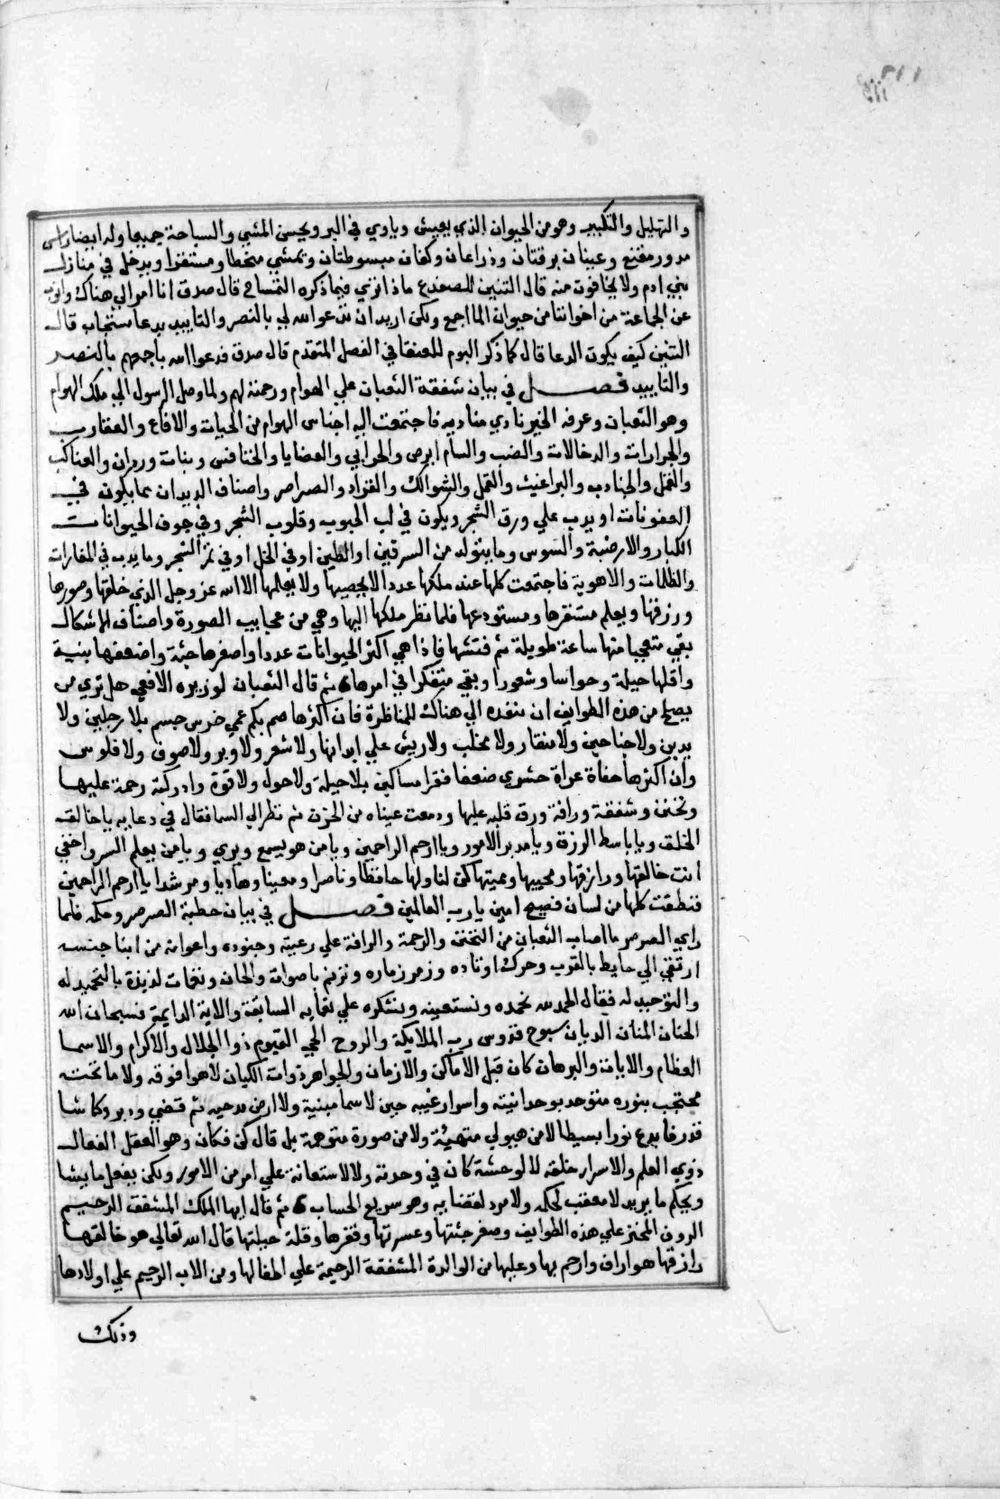 والتهليل والتكبير وهو من الحيوان الذي يعيش وياوي في البر ويحسن المشي والسباحة جميعا وله ايضا راس
مدور مقنع وعينان برقتان وذراعان وكفان مبسوطتان ويمشي متخطا ومستقفزا ويدخل في منازل
بني ادم ولا يخافون منه قال التنين للضفدع ماذا تري فيما ذكره التمساح قال صدق انا امر الي هناك وانوب
عن الجماعة من اخواننا من حيوان الما اجع ولكن اريد ان تدعوا لله لي بالنصر والتاييد بدعا مستجاب قال
التنين كيف يكون الدعا قال كما ذكر البوم للعنقا في الفصل المتقدم قال صدق فدعوا الله باجمهم بالنصر
والتاييد فصل في بيان شفقة الثعبان علي الهوام ورحمته لهم ولما وصل الرسول الي ملك الهوام
وهو الثعبان وعرفه الخبر نادي مناديه فاجتمعت اليه اجناس الهوام من الحيات والافاع والعقارب
والجرارات والدخالات والضب والسام ابرص والحرابي والعضايا والخنافس وبنات وردان والعناكب
والنمل والجنادب والبراغيث والقمل والشوالك والقراد والصراصر واصناف الديدان مما يكون في
العفونات او يدب علي ورق الشجر ويكون في لب الحبوب وقلوب الشجر وفي جوف الحيوانات
الكبار والارضة والسوس وما يتولد من السرقين او الطين او في الخل او في ثمر الشجر وما يدب في المغارات
والظلمات والاهوية فاجتمعت كلها عند ملكها عدد الا يحصيها ولا يعلمها الا الله عز وجل الذي خلقها وصورها
ورزقها ويعلم مستقرها ومستودعها فلما نظر ملكها اليها وهي من عجايب الصورة واصناف الاشكال
بقي متعجبا منها ساعة طويلة ثم فتشها فاذا هي اكثر الحيوانات عددا واصغرها جثة واضعفها بنية
واقلها حيلة وحواسا وشعورا وبقي متفكرا في امرها ثم قال الثعبان لوزيره الافعي هل تري من
يصلح من هذه الطوايف ان ننفده الي هناك للمناظرة فان اكثرها صم بكم عمي خرس جسم بلا رجلين ولا
يدين ولا جناحين ولا منقار ولا مخلب ولا ريش علي ابدانها ولا شعر ولا وبر ولا صوف ولا فلوس
وان اكثرها حفاة عراة حسري ضعفا فقرا مساكين بلا حيلة ولا حول ولا قوة وادركته رحمة عليها
وتحنن وشفقة ورافة ورق قلبه عليها ودمعت عيناه من الحزن ثم نظر الي السما فقال في دعايه يا خالق
الخلق ويا باسط الرزق ويا مدبر الامور ويا ارحم الراحمين ويا من هو يسمع ويري ويا من يعلم السر واخفي
انت خالقها ورازقها ومحييها ومميتها كن لنا ولها حافظا وناصرا ومعينا وهاديا ومرشدا يا ارحم الراحمين
فنطقت كلها من لسان فصيح امين يا رب العالمين فصل في بيان خطبة الصرصر وحكمه فلما
راي الصرصر ما اصاب الثعبان من التحنن والرحمة والرافة علي رعيته وجنوده واعوانه من ابنا جنسه
ارتقي الي حايط بالقرب وحرك اوتاده وزمر زماره وترنم باصوات والحان ونغمات لذيذة بالتحميد له
والتوحيد له فقال الحمد لله نحمده ونستعينه ونشكره علي نعمايه السابقة والاية الدايمة فسبحان الله
الحنان المنان الديان سبوح قدوس رب الملايكة والروح الحي القيوم ذوا الجلال والاكرام والاسما
العظام والايات والبرهان كان قبل الاماكن والازمان والجواهر ذوات الكيان لا هو افوقه ولا ما تحته
محتجب بنوره متوحد بوحدانيته واسرار غيبه حين لا سما مبنية ولا ارض مدحيه ثم قضي ودبر وكما شا
قدر فابدع نورا بسيطا لا من هيولي متهيئة ولا من صورة متوهمة بل قال كن فكان وهو العقل الفعال
ذوي العلم والاسرار خلقه لا لوحشة كان في وحدته ولا لاستعانة علي امر من الامور ولكن يفعل ما يشا
ويحكم ما يريد لا معقب لحكمه ولا مرد لقضايه وهو سريع الحساب ثم قال ايها الملك المشفق الرحيم
الروف المحنن علي هذه الطوايف وصغر جثتها وعسرتها وفقرها وقلة حيلتها قال الله تعالي هو خالقها
رازقها هو اراف وارحم بها وعليها من الوالدة المشفقة الرحيمة علي اطفالها ومن الاب الرحيم علي اولادها
وذلك